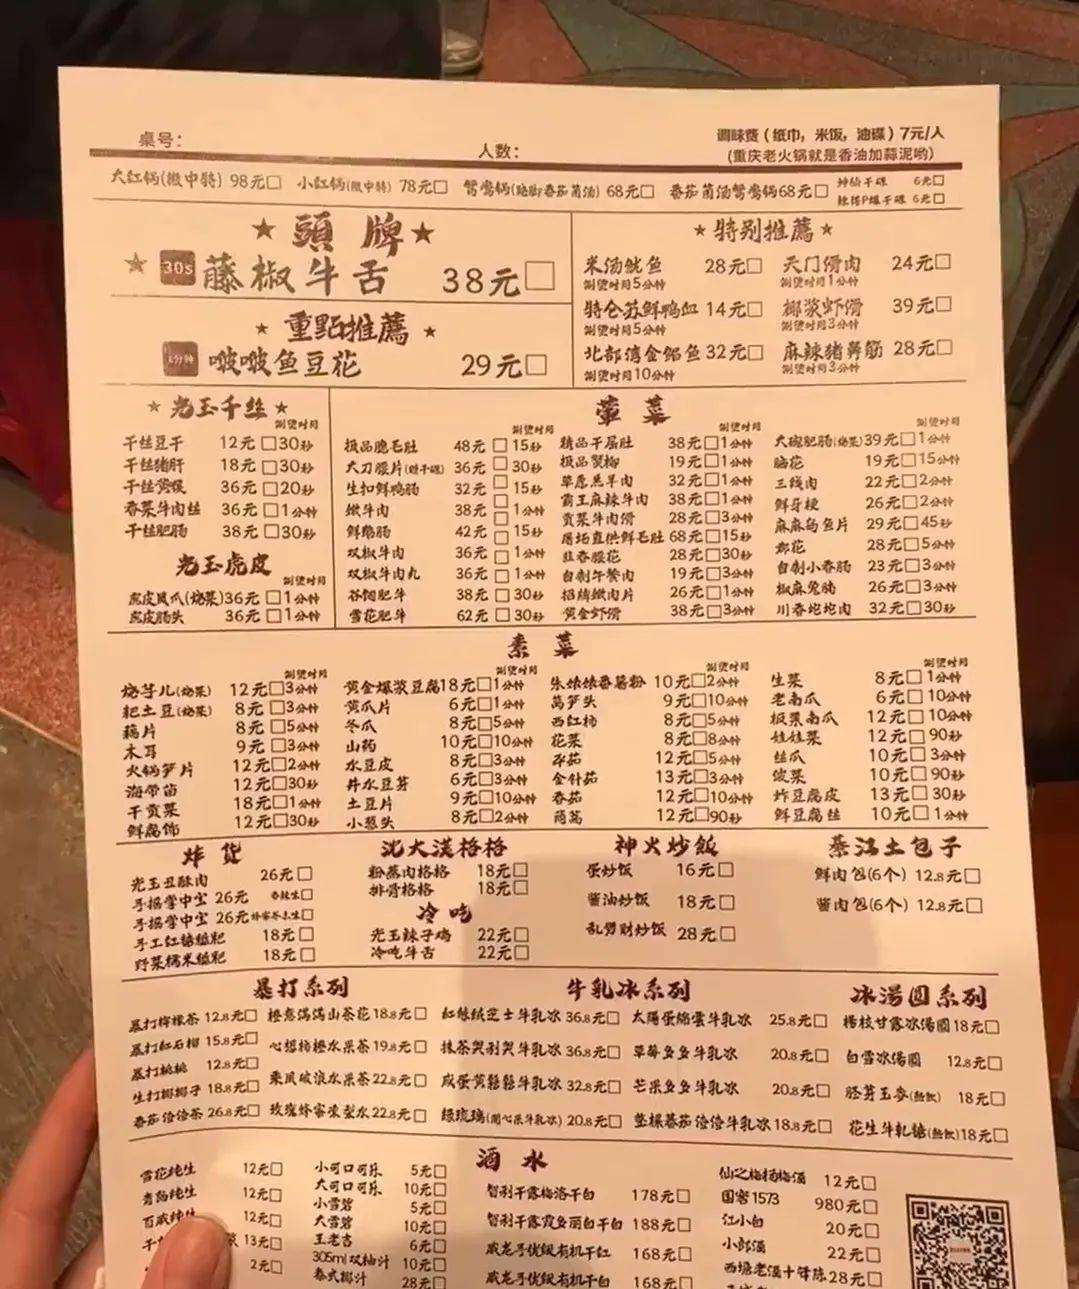 桌号：
人数：
调味费（纸巾，米饭，油碟）7元/人
（重庆老火锅就是香油加蒜泥哟）
大红锅(微中特) 98元□ 小红锅(微中特) 78元□ 68元□ 番茄菌汤鸳鸯锅68元□ 干碟 6元□
干碟 6元□
★ 頭牌 ★
★ 30s 藤椒牛舌 38元□
★ 重點推薦 ★
1分钟 啵啵鱼豆花 29元□
★ 特别推薦 ★
米汤鱿鱼 28元□ 天门滑肉 24元□
涮烫时间5分钟 涮烫时间1分钟
特仑苏鲜鸭血 14元□ 椰浆虾滑 39元□
涮烫时间5分钟 涮烫时间3分钟
北部湾金鲳鱼 32元□ 麻辣猪鼻筋 28元□
涮烫时间10分钟 涮烫时间3分钟
★ 光玉千丝 ★
涮烫时间
干丝豆干 12元□30秒
干丝猪肝 18元□30秒
干丝黄喉 36元□20秒
香菜牛肉丝 36元□1分钟
干丝肥肠 38元□30秒
光玉虎皮
涮烫时间
虎皮凤爪(烧菜)36元□1分钟
虎皮肠头 36元□1分钟
荤菜
涮烫时间 涮烫时间 涮烫时间
极品脆毛肚 48元□15秒 精品千层肚 38元□1分钟 大碗肥肠(烧菜)39元□1分钟
大刀腰片(赠干碟) 36元□30秒 19元□1分钟 脑花 19元□15分钟
生扣鲜鸭肠 32元□15秒 草原羔羊肉 32元□1分钟 三线肉 22元□2分钟
嫩牛肉 38元□1分钟 霸王麻辣牛肉 38元□1分钟 鲜牙梗 26元□2分钟
鲜鹅肠 42元□15秒 贡菜牛肉滑 28元□3分钟 麻麻乌鱼片 29元□45秒
双椒牛肉 36元□1分钟 屠场直供鲜毛肚 68元□15秒 郡花 28元□5分钟
双椒牛肉丸 36元□1分钟 韭香腰花 28元□30秒 自制小香肠 23元□3分钟
谷饲肥牛 38元□30秒 自制午餐肉 19元□3分钟 椒麻兔腩 26元□3分钟
雪花肥牛 62元□30秒 招牌嫩肉片 26元□1分钟 川香坨坨肉 32元□30秒
黄金虾滑 38元□3分钟
素菜
涮烫时间 涮烫时间 涮烫时间 涮烫时间
烧芋儿(烧菜) 12元□3分钟 黄金爆浆豆腐18元□1分钟 朱娘娘番薯粉 10元□2分钟 生菜 8元□1分钟
粑土豆(烧菜) 8元□3分钟 黄瓜片 6元□1分钟 莴笋头 9元□10分钟 老南瓜 6元□10分钟
藕片 8元□5分钟 冬瓜 8元□5分钟 西红柿 8元□5分钟 板栗南瓜 12元□10分钟
木耳 9元□3分钟 山药 10元□10分钟 花菜 8元□8分钟 娃娃菜 12元□90秒
火锅笋片 12元□2分钟 水豆皮 8元□3分钟 12元□5分钟 丝瓜 10元□3分钟
海带苗 12元□30秒 井水豆芽 6元□3分钟 金针菇 13元□3分钟 菠菜 10元□90秒
干贡菜 18元□1分钟 土豆片 9元□10分钟 香菇 12元□10分钟 炸豆腐皮 13元□30秒
鲜腐竹 12元□30秒 小葱头 8元□2分钟 茼蒿 12元□90秒 鲜豆腐丝 10元□1分钟
炸货
光玉丑酥肉 26元□
手摇掌中宝 26元 香辣生□
手摇掌中宝 26元□
手工红糖糍粑 18元□
野菜糯米糍粑 18元□
沈大漢格格
粉蒸肉格格 18元□
排骨格格 18元□
冷吃
光玉辣子鸡 22元□
冷吃牛舌 22元□
神火炒飯
蛋炒饭 16元□
酱油炒饭 18元□
乱劈财炒饭 28元□
綦江土包子
鲜肉包(6个) 12.8元□
酱肉包(6个) 12.8元□
暴打系列
暴打柠檬茶 12.8元□ 橙意满满山茶花 18.8元□
暴打红石榴 15.8元□ 心想柿橙水果茶 19.8元□
暴打桃桃 12.8元□ 乘风破浪水果茶 22.8元□
生打椰椰子 18.8元□ 玫瑰蜂蜜冻梨水 22.8元□
番茄倍倍茶 26.8元□
牛乳冰系列
红丝绒芝士牛乳冰 36.8元□ 太陽蛋绵雲牛乳冰 25.8元□
抹茶哭刹哭牛乳冰 36.8元□ 草莓多多牛乳冰 20.8元□
咸蛋黄松松牛乳冰 32.8元□ 芒果多多牛乳冰 20.8元□
绿琉璃(开心果牛乳冰) 20.8元□ 垫样番茄倍倍牛乳冰 18.8元□
冰湯圆系列
杨枝甘露冰汤圆 18元□
白雪冰汤圆 12.8元□
胚芽玉麦(热饮) 18元□
花生牛轧糖(热饮)18元□
酒水
雪花纯生 12元□
青岛纯生 12元□
百威纯生 12元□
13元□
2元□
小可口可乐 5元□
大可口可乐 10元□
小雪碧 5元□
大雪碧 10元□
王老吉 6元□
305ml双柚汁 10元□
泰式椰汁 28元□
智利干露梅洛干白 178元□
智利干露霞多丽白干白 188元□
威龙手优级有机干红 168元□
威龙手优级有机干白 168元□
仙之梅杨梅酒 12元□
国窖1573 980元□
江小白 20元□
小郎酒 22元□
西塘老酒十年陈28元□